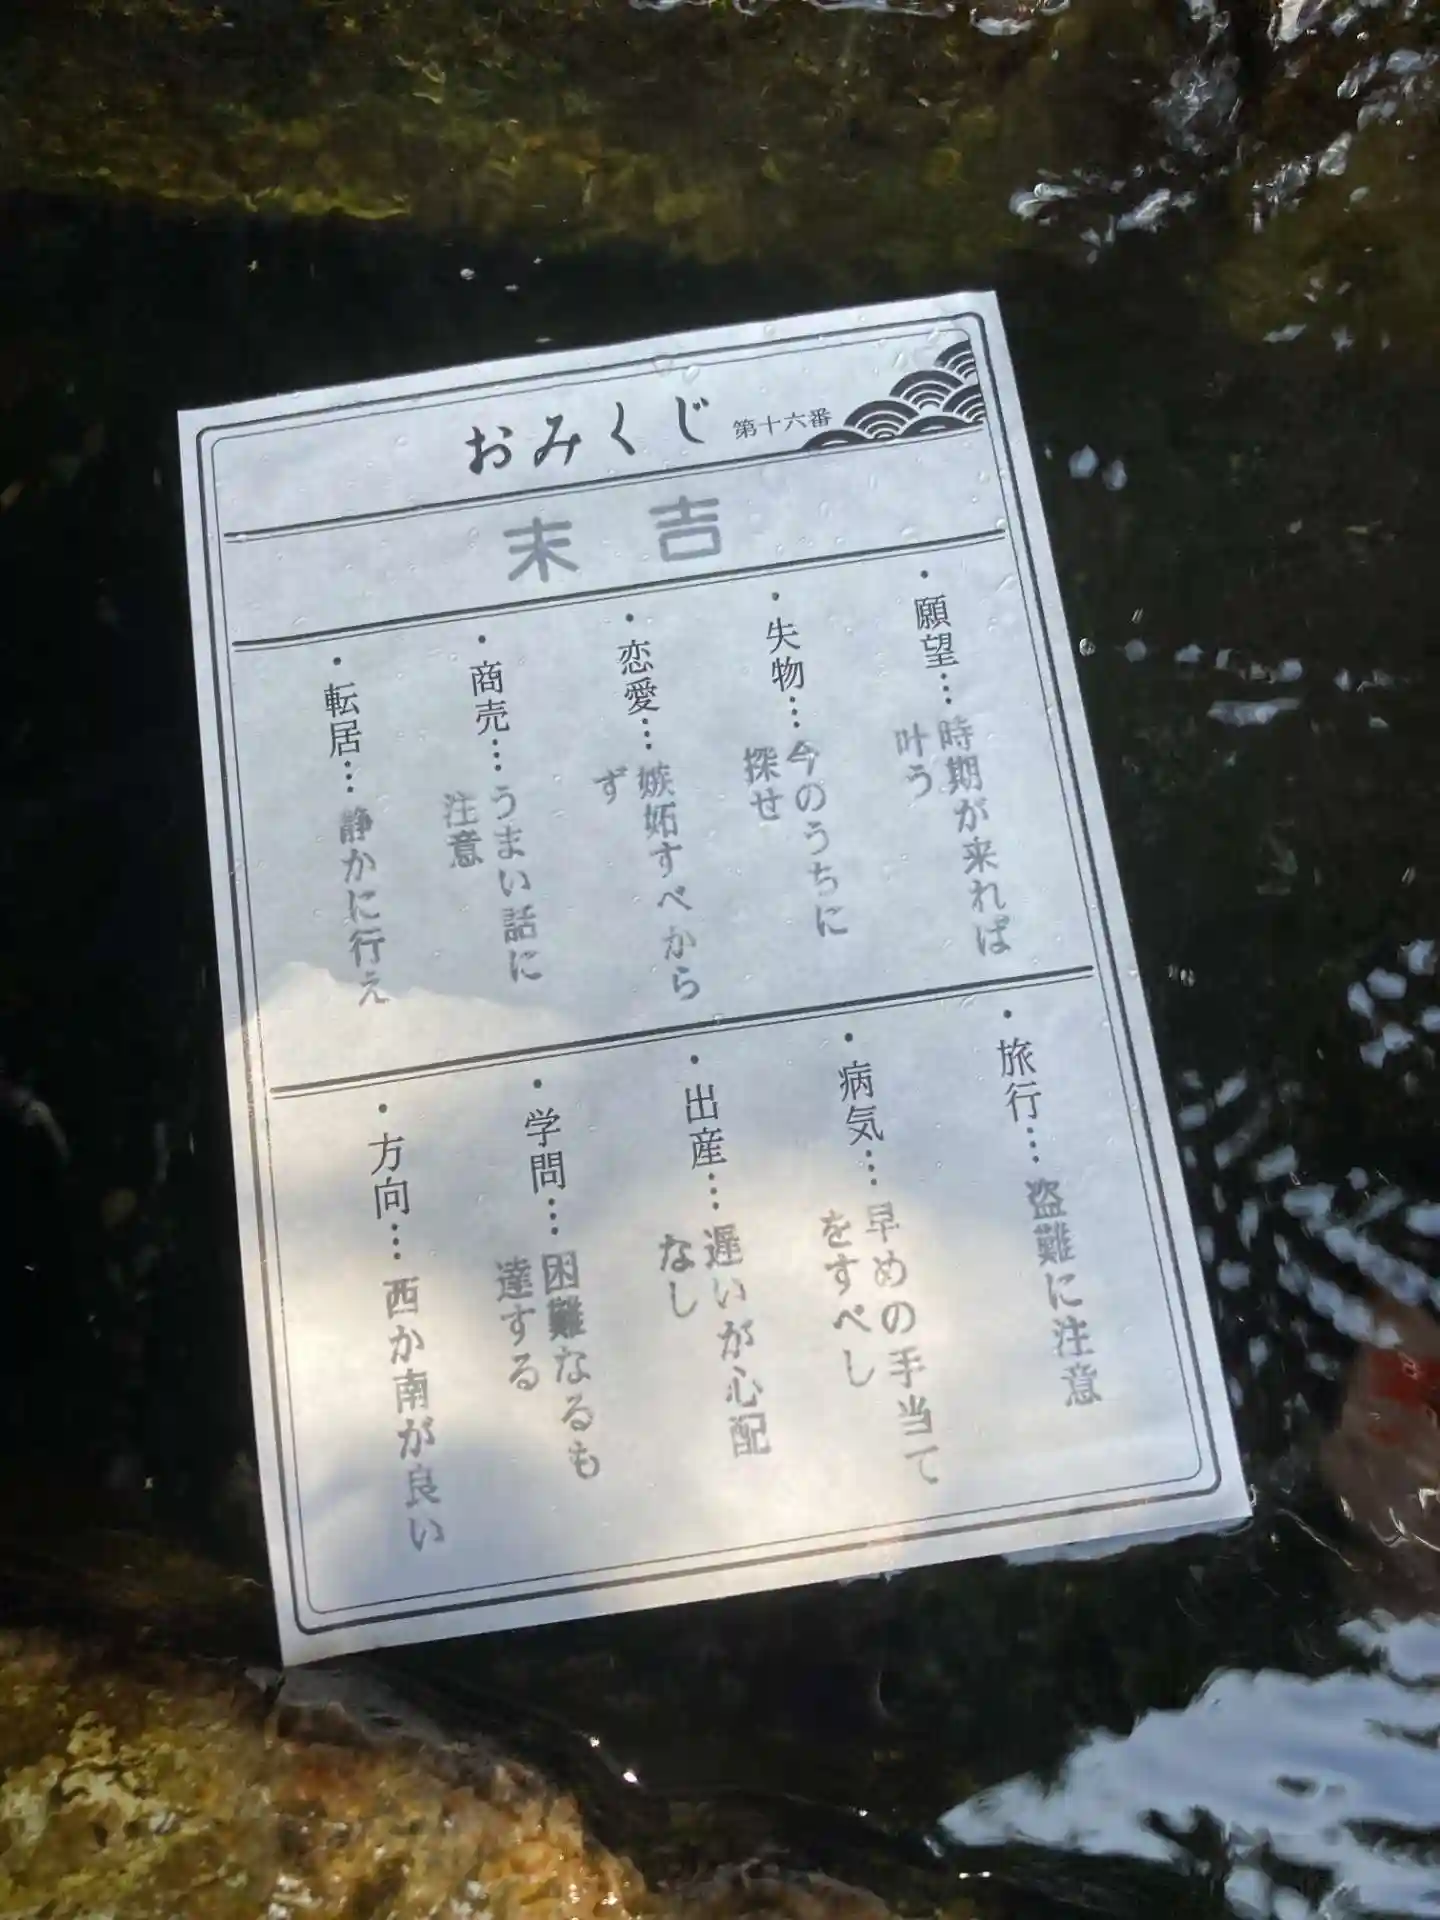 おみくじ 第十六番
末 吉
・願望…時期が来れば
叶う
・失物…今のうちに
探せ
・恋愛…嫉妬すべから
ず
・商売…うまい話に
注意
・転居…静かに行え
・旅行…盗難に注意
・病気…早めの手当て
をすべし
・出産…遅いが心配
なし
・学問…困難なるも
達する
・方向…西か南が良い